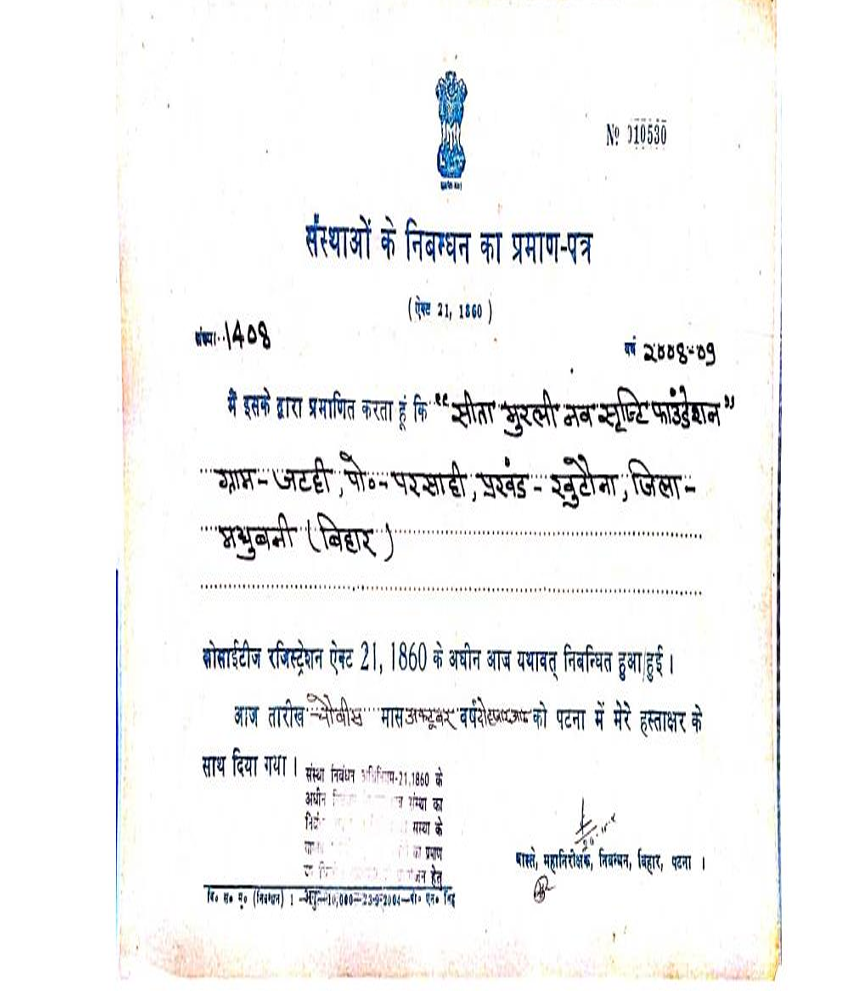 Nº 010530
संस्थाओं के निबन्धन का प्रमाण-पत्र
(ऐक्ट 21, 1860)
संख्या..1408
वर्ष 2008-09
मैं इसके द्वारा प्रमाणित करता हूं कि "सीता मुरली नव सृष्टि फाउंडेशन"
ग्राम-जटही, पो०-परसाही, प्रखंड-खुटौना, जिला-
मधुबनी (बिहार)
सोसाईटीज रजिस्ट्रेशन ऐक्ट 21, 1860 के अधीन आज यथावत् निबन्धित हुआ/हुई ।
आज तारीख चौबीस मास अक्टूबर वर्ष दो हजार आठ को पटना में मेरे हस्ताक्षर के
साथ दिया गया ।
संस्था निबंधन अधिनियम-21,1860 के
अधीन संस्था का
संस्था के
का प्रमाण
हेतु
वास्ते, महानिरीक्षक, निबन्धन, बिहार, पटना ।
वि० स० मु० (निबन्धन) 1 -अनु-10,000-23-9-2004-